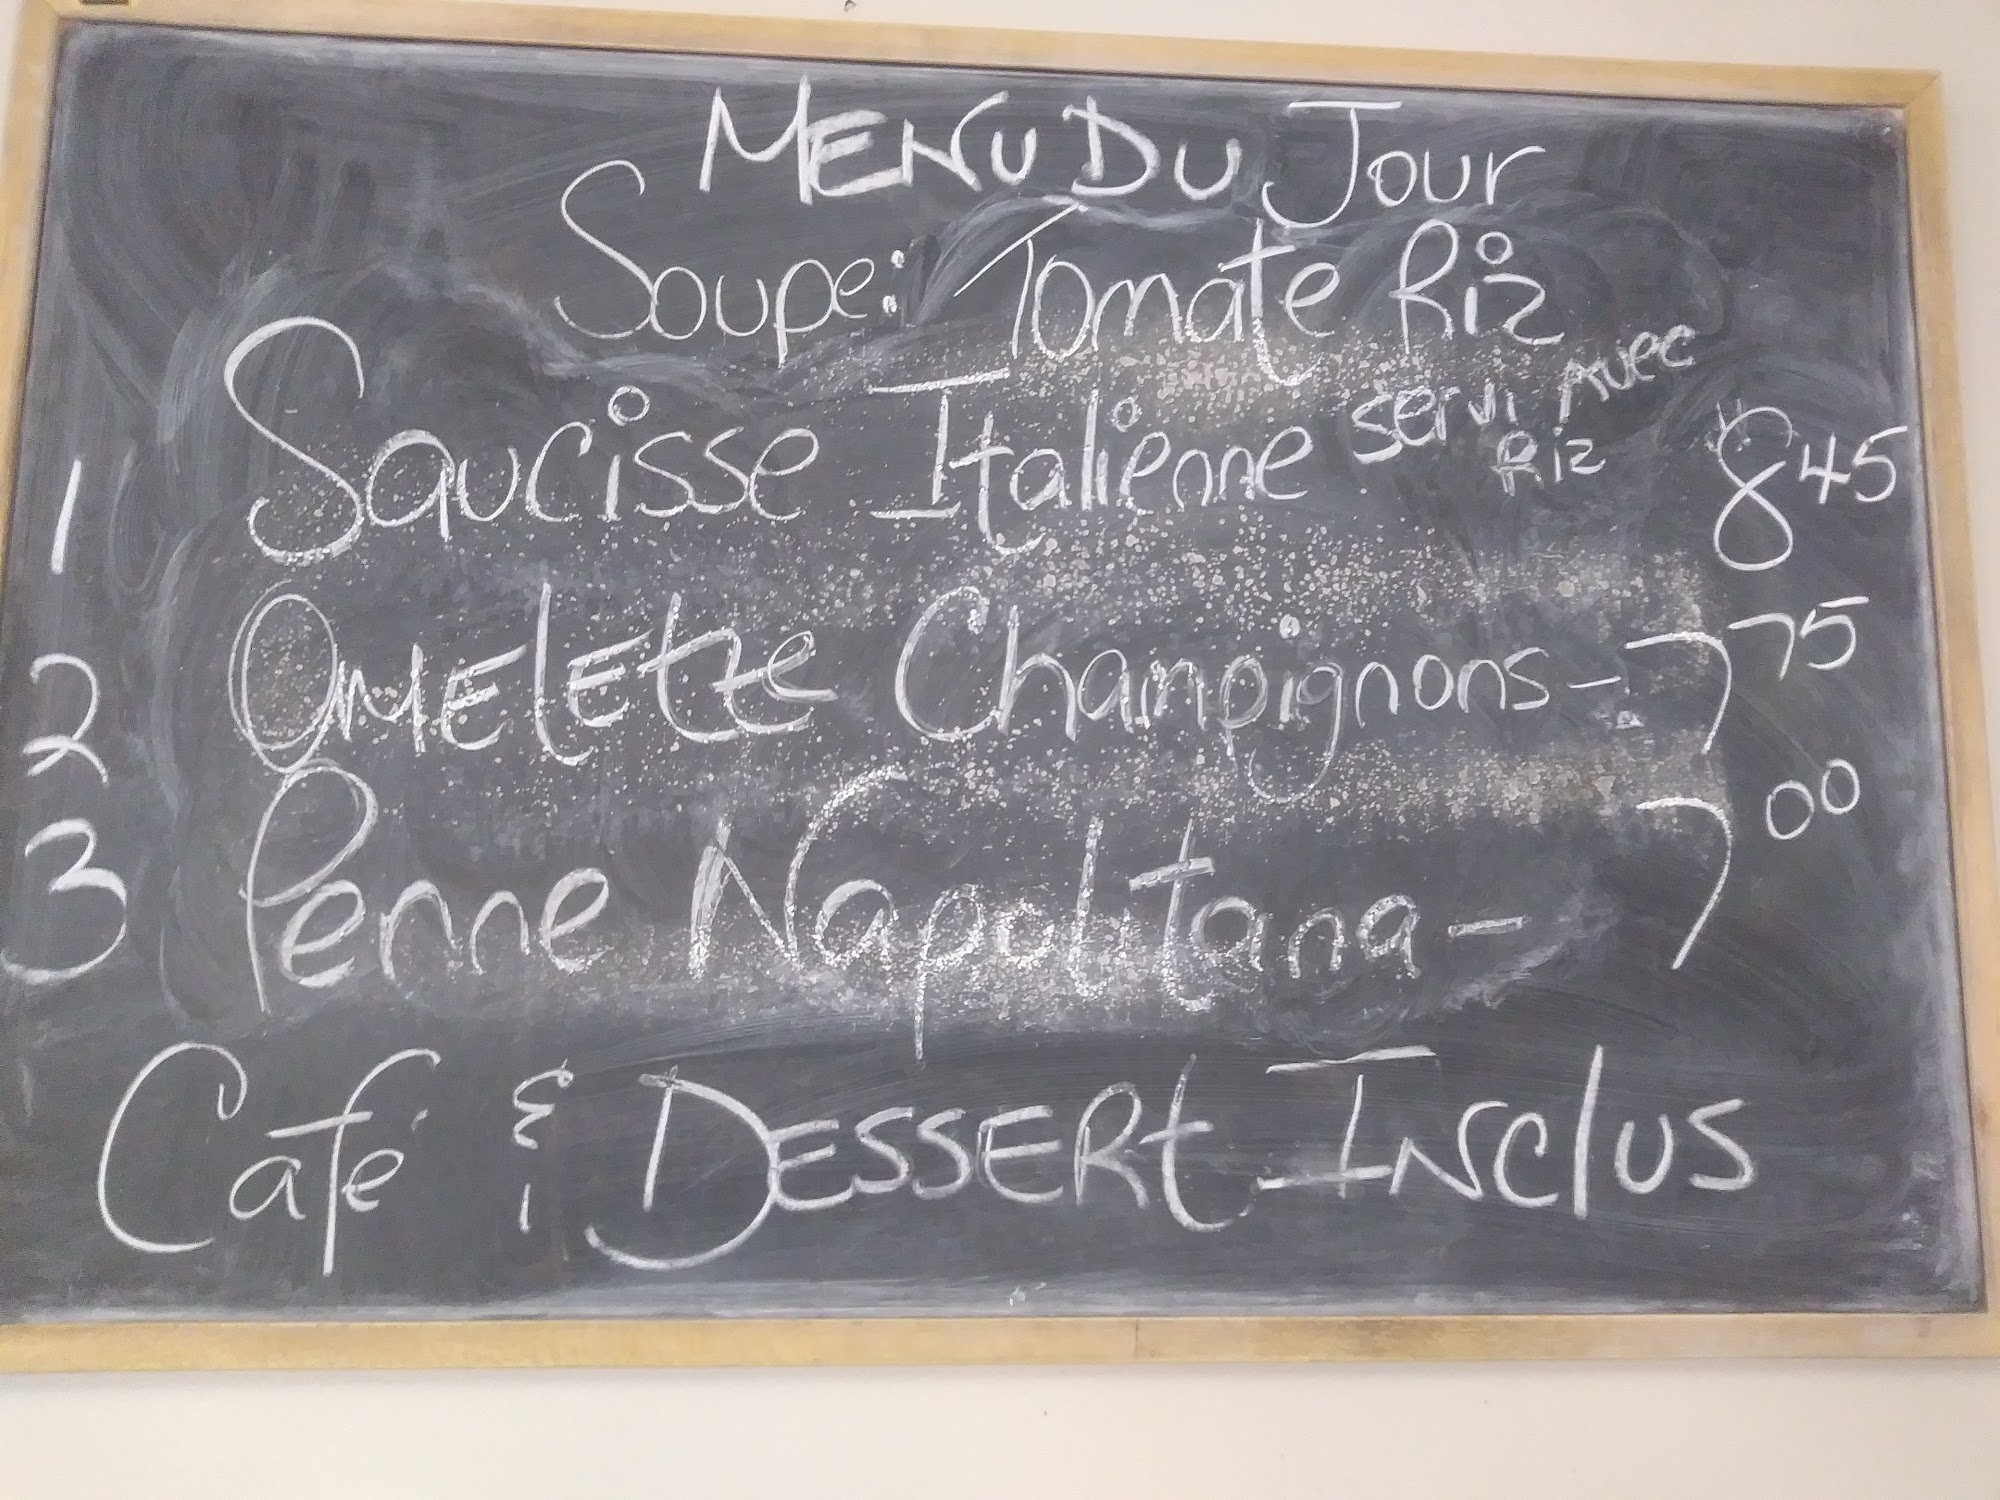 MENU DU JOUR
Soupe: Tomate Riz
1 Saucisse Italienne servi Avec Riz 8 45
2 OMELETTE Champignons - 7 75
3 Penne Napolitana - 7 00
Café & DESSERt INClUS